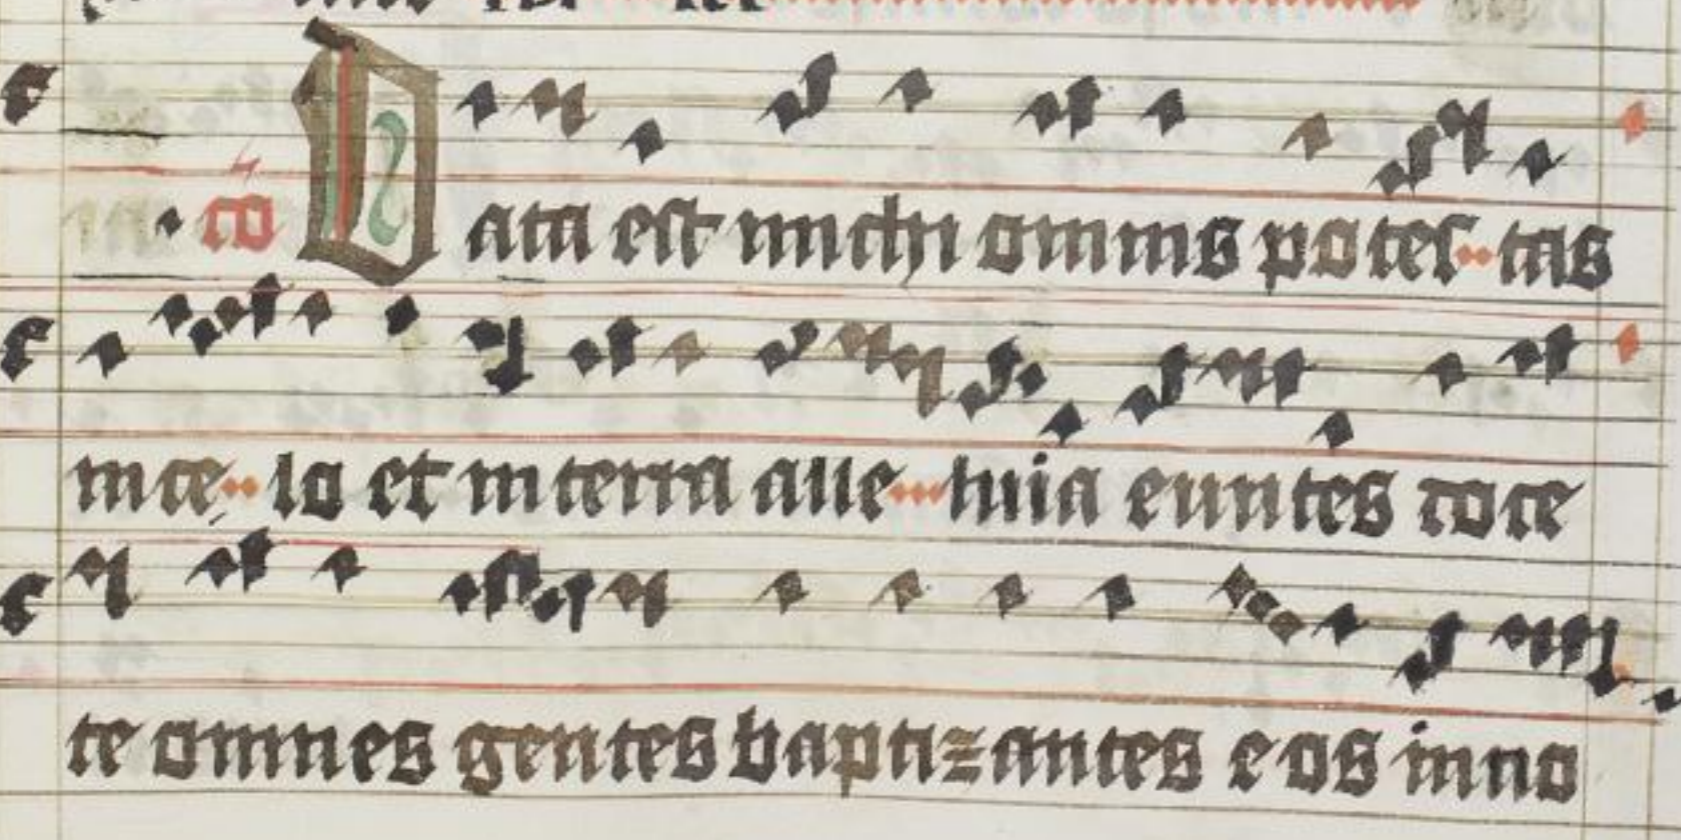 co Data est michi omnis potes tas
in ce lo et in terra alle luia euntes doce
te omnes gentes baptizantes eos in no